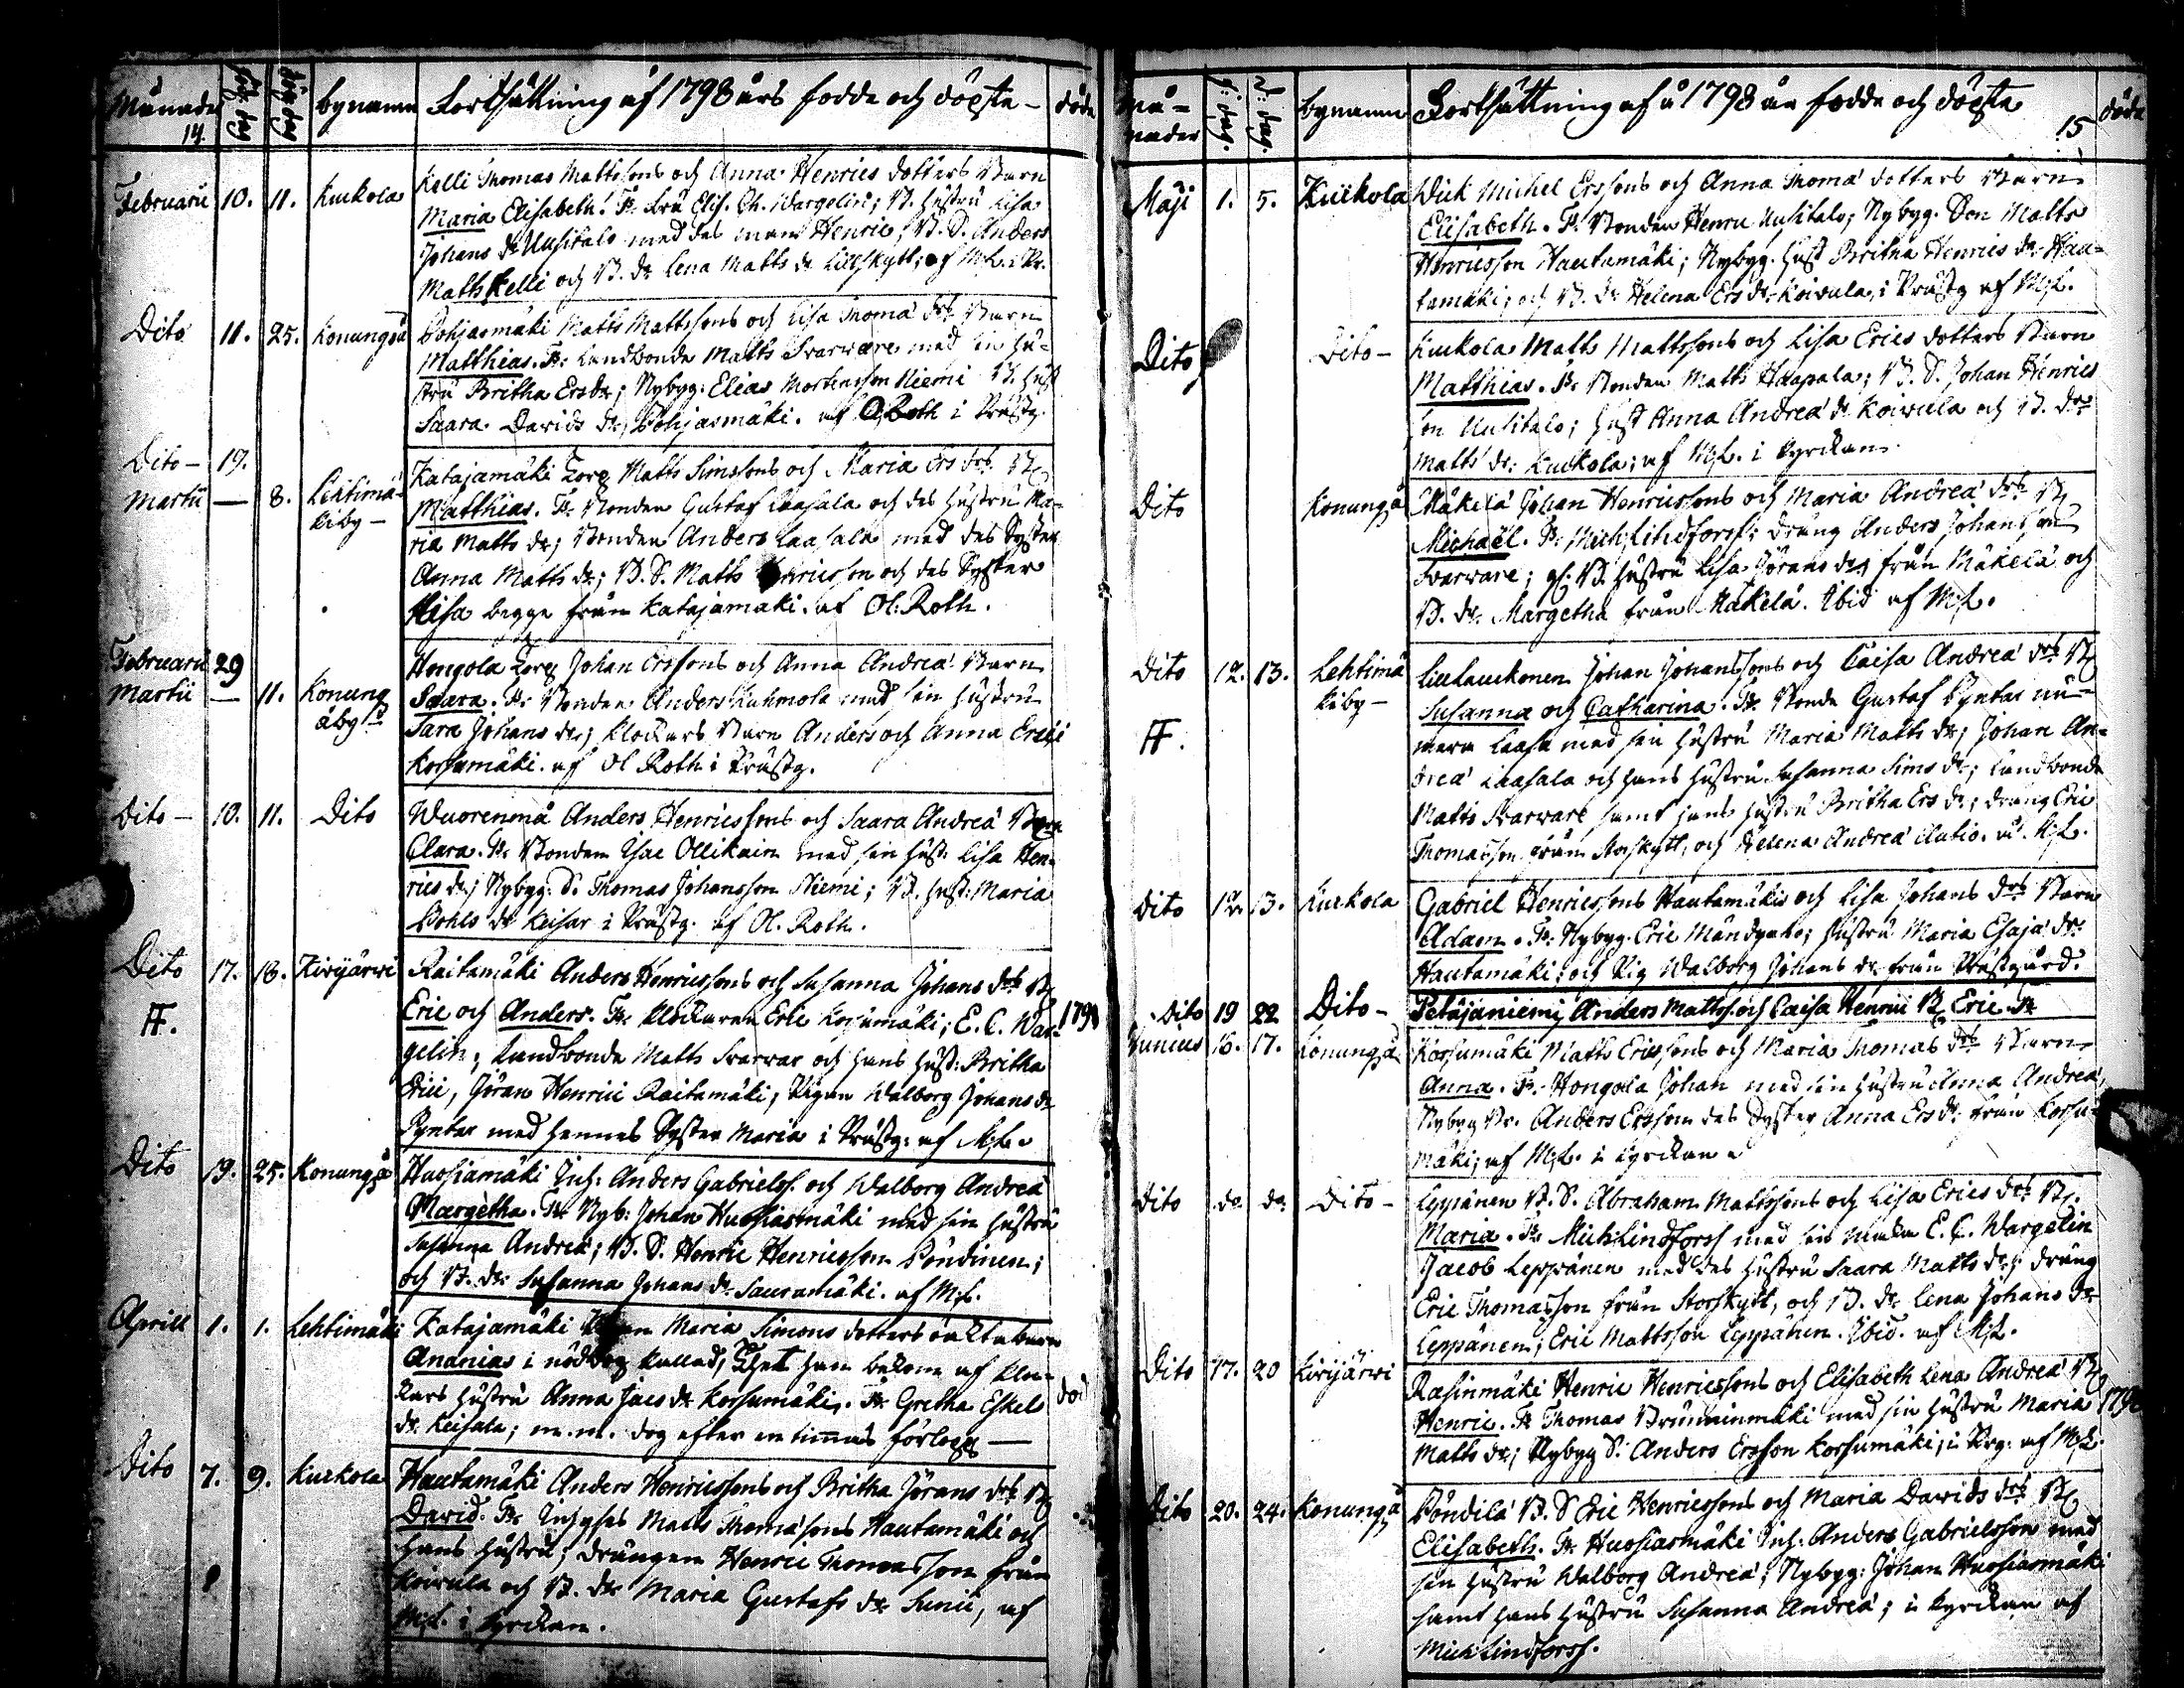 Månader 14. föd: dag döp: dag bynamn Fortsättning af 1798 års födde och döpte - döde
Februarii 10. 11. Kurkola Kelli Thomas Mattssons och Anna Henrics dotters Barn
Maria Elisabeth. Fr. Fru Elis. Ch. Wargelin; B. hustru Lisa
Johans dr Uusitalo med des man Henric; B. S. Anders
Matts Kelli och B. dr Lena Matts dr Lillskytt; af M. L. i Pr.
Dito 11. 25. Konungså Pohjasmäki Matts Mattssons och Lisa Thomæ drs Barn
Matthias. Fr. Landbonde Matts Svarvare med sin hu-
stru Britha Ersdr; Nybyg: Elias Mortensson Niemi B. Hust
Saara Davids dr, Pohjasmäki. af O. Roth i Prästg.
Dito - 19. Katajamäki Torp Matts Simssons och Maria Ers drs B.
Martii — 8. Lehtimä-
kiby - Matthias. Fr. Bonden Gustaf Laasala och des Hustru Ma-
ria Matts dr; Bonden Anders Laasala med des Syster
Anna Matts dr; B. S. Matts Henricsson och des Syster
Lisa begge från Katajamäki. af Ol. Roth.
Februarii 29 Hongola Torp Johan Erssons och Anna Andreæ Barn
Martii — 11. Konung
åby Saara. Fr. Bonden Anders Kuhmola med sin Hustru
Sara Johans dr; Klockars Barn Anders och Anna Ersii
Korsumäki. af Ol Roth i Prästg.
Dito - 10. 11. Dito Wuorenmä Anders Henricssons och Saara Andreæ Barn
Clara. Fr. Bonden Isac Ollikain med sin hust: Lisa Hen-
rics dr; Nybyg. S. Thomas Johansson Niemi; B. hust: Maria
Pohls dr Keisar i Prästg. af Ol. Roth.
Dito 17. 18. Kivijärvi Raitamäki Anders Henricssons och Susanna Johans drs B.
FF. Eric och Anders. Fr. Klockaren Eric Korsumäki; E. C. War- 1798
gelin; Landbonde Matts Svarvar och hans hust: Britha
Erici, Jöran Henrici Raitamäki, Pigan Walborg Johans dr
Pyntar med hennes Syster Maria i Prästg: af M. L.
Dito 19. 25. Konungså Huosiamäki Inh: Anders Gabrielss. och Walborg Andreæ
Margetha. Fr. Nyb: Johan Huosiasmäki med sin Hustru
Susanna Andreæ; B. S. Henric Henricsson Pöndinen;
och B. dr Susanna Johans dr Sauramäki. af M. L.
Aprill 1. 1. Lehtimäki Katajamäki Maria Simons dotters oäkta barn
Ananias i nöddop kallad, som han bekom af Kloc-
kars hustru Anna Jacs dr Korsumäki. Fr. Gretha Eskel död
dr Keisala; m. m. dog efter en timmas förlopp —
Dito 7. 9. Kurkola Hautamäki Anders Henricssons och Britha Jörans drs B.
David. Fr. Inhyses Matts Thomæsons Hautamäki och
hans hustru; drängen Henric Thomasson från
Koivula och B. dr Maria Gustafs dr Sunii, af
M. L. i Kyrckan.
Må-
nader f: dag. d: dag. bynamn Fortsättning af å 1798 års födde och döpte 15 döde
Maji 1. 5. Kurkola Wick Michel Erssons och Anna Thomæ dotters Barn
Elisabeth. Fr. Bonden Henric Uusitalo; Nybyg. Son Matts
Henricsson Hautamäki; Nybyg. hust Britha Henrics dr Hau-
tamäki; och B. dr Helena Ers dr Koivula, i Prästg af M. L.
Dito Dito - Kurkola Matts Mattssons och Lisa Erics dotters Barn
Matthias. Fr. Bonden Matts Haapala; B. S. Johan Henrics
son Uusitalo; hust Anna Andreæ dr Koivula och B. dr
Matts dr: Kurkola; af M. L. i Kyrckan.
Dito Konungså Mäkelä Johan Henricssons och Maria Andreæ drs B.
Michaël. Fr. Mich: Lindforss; dräng Anders Johansson
Svarvare; gl. B. hustru Lisa Jörans dr från Mäkelä och
B. dr. Margetha från Mäkelä. Ibid af M. L.
Dito 12. 13. Lehtimä
kiby - Lillauckonen Johan Johanssons och Caisa Andreæ drs B.
Susanna och Catharina. Fr. Bonde Gustaf Pyntar nu-
FF. mera Laasa med sin hustru Maria Matts dr; Johan An-
dreæ Laasala och hans hustru Susanna Sims dr; Landbonde
Matts Svarvare samt hans hustru Britha Ers dr; dräng Eric
Thomasson från Storskytt, och Helena Andreæ Autio. af M. L.
Dito 12. 13. Kurkola Gabriel Henricssons Hautamäkis och Lisa Johans drs Barn
Adam. Fr. Nybyg. Eric Mändynto; Hustru Maria Esajæ dr
Hautamäki; och Pig Walborg Johans dr från Prästgård.
Dito 19 22 Dito - Petäjäniemi Anders Mattss. och Caisa Henrici B. Eric. Fr
Junius 16. 17. Konungså Korsumäki Matts Ericssons och Maria Thomas drs Barn
Anna. Fr. Hongola Johan med sin hustru Anna Andreæ,
Nybyg Anders Ersson des Syster Anna Ers dr från Korsu-
mäki; af M. L. i Kyrckan.
Dito do do Dito - Leppänen B. S. Abraham Mattssons och Lisa Erics drs B.
Maria. Fr. Mich Lindforss med sin maka E. C. Wargelin
Jacob Leppänen med des hustru Saara Matts dr; dräng
Eric Thomasson från Storskytt, och B. dr Lena Johans dr
Leppänen; Eric Mattsson Leppänen. Ibid. af M. L.
Dito 17. 20 Kivijärvi Rasinmäki Henric Henricssons och Elisabeth Lena Andreæ B.
Henric. Fr Thomas Brunninmäki med sin hustru Maria 179
Matts dr; Nybyg S. Anders Ersson Korsumäki; i Prg: af M. L.
Dito 20. 24. Konungså Pöndilä B. S Eric Henricssons och Maria Davids drs B.
Elisabeth. Fr. Huosiasmäki Inh. Anders Gabrielsson med
sin hustru Walborg Andreæ; Nybyg: Johan Huosiasmäki
samt hans hustru Susanna Andreæ; i Kyrckan af
Mich Lindforss.